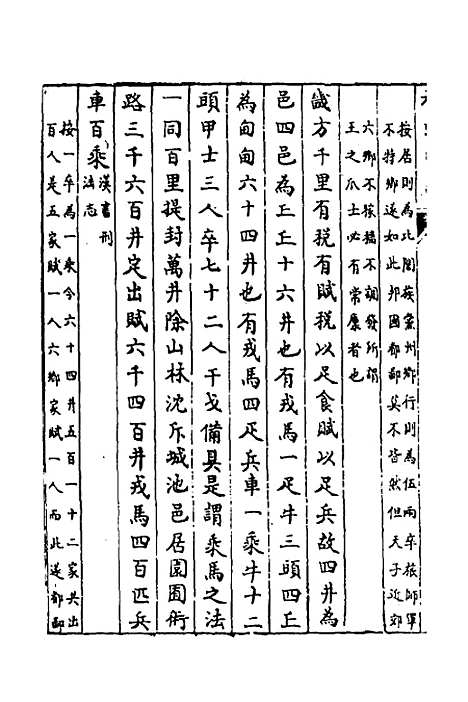 按居則為比閭族黨州鄉行則為伍兩卒旅師軍
不特鄉遂如此邦國都鄙莫不皆然但天子近郊
六鄉不稼穡不調發所謂
王之爪士必有常廩者也
畿方千里有稅有賦稅以足食賦以足兵故四井為
邑四邑為丘丘十六井也有戎馬一疋牛三頭四丘
為甸甸六十四井也有戎馬四疋兵車一乘牛十二
頭甲士三人卒七十二人干戈備具是謂乘馬之法
一同百里提封萬井除山林沈斥城池邑居園囿術
路三千六百井定出賦六千四百井戎馬四百匹兵
車百乘漢書刑
法志
按一卒為一乘今六十四井五百一十二家共出
百人是五家賦一人六鄉家賦一人而此遂都鄙